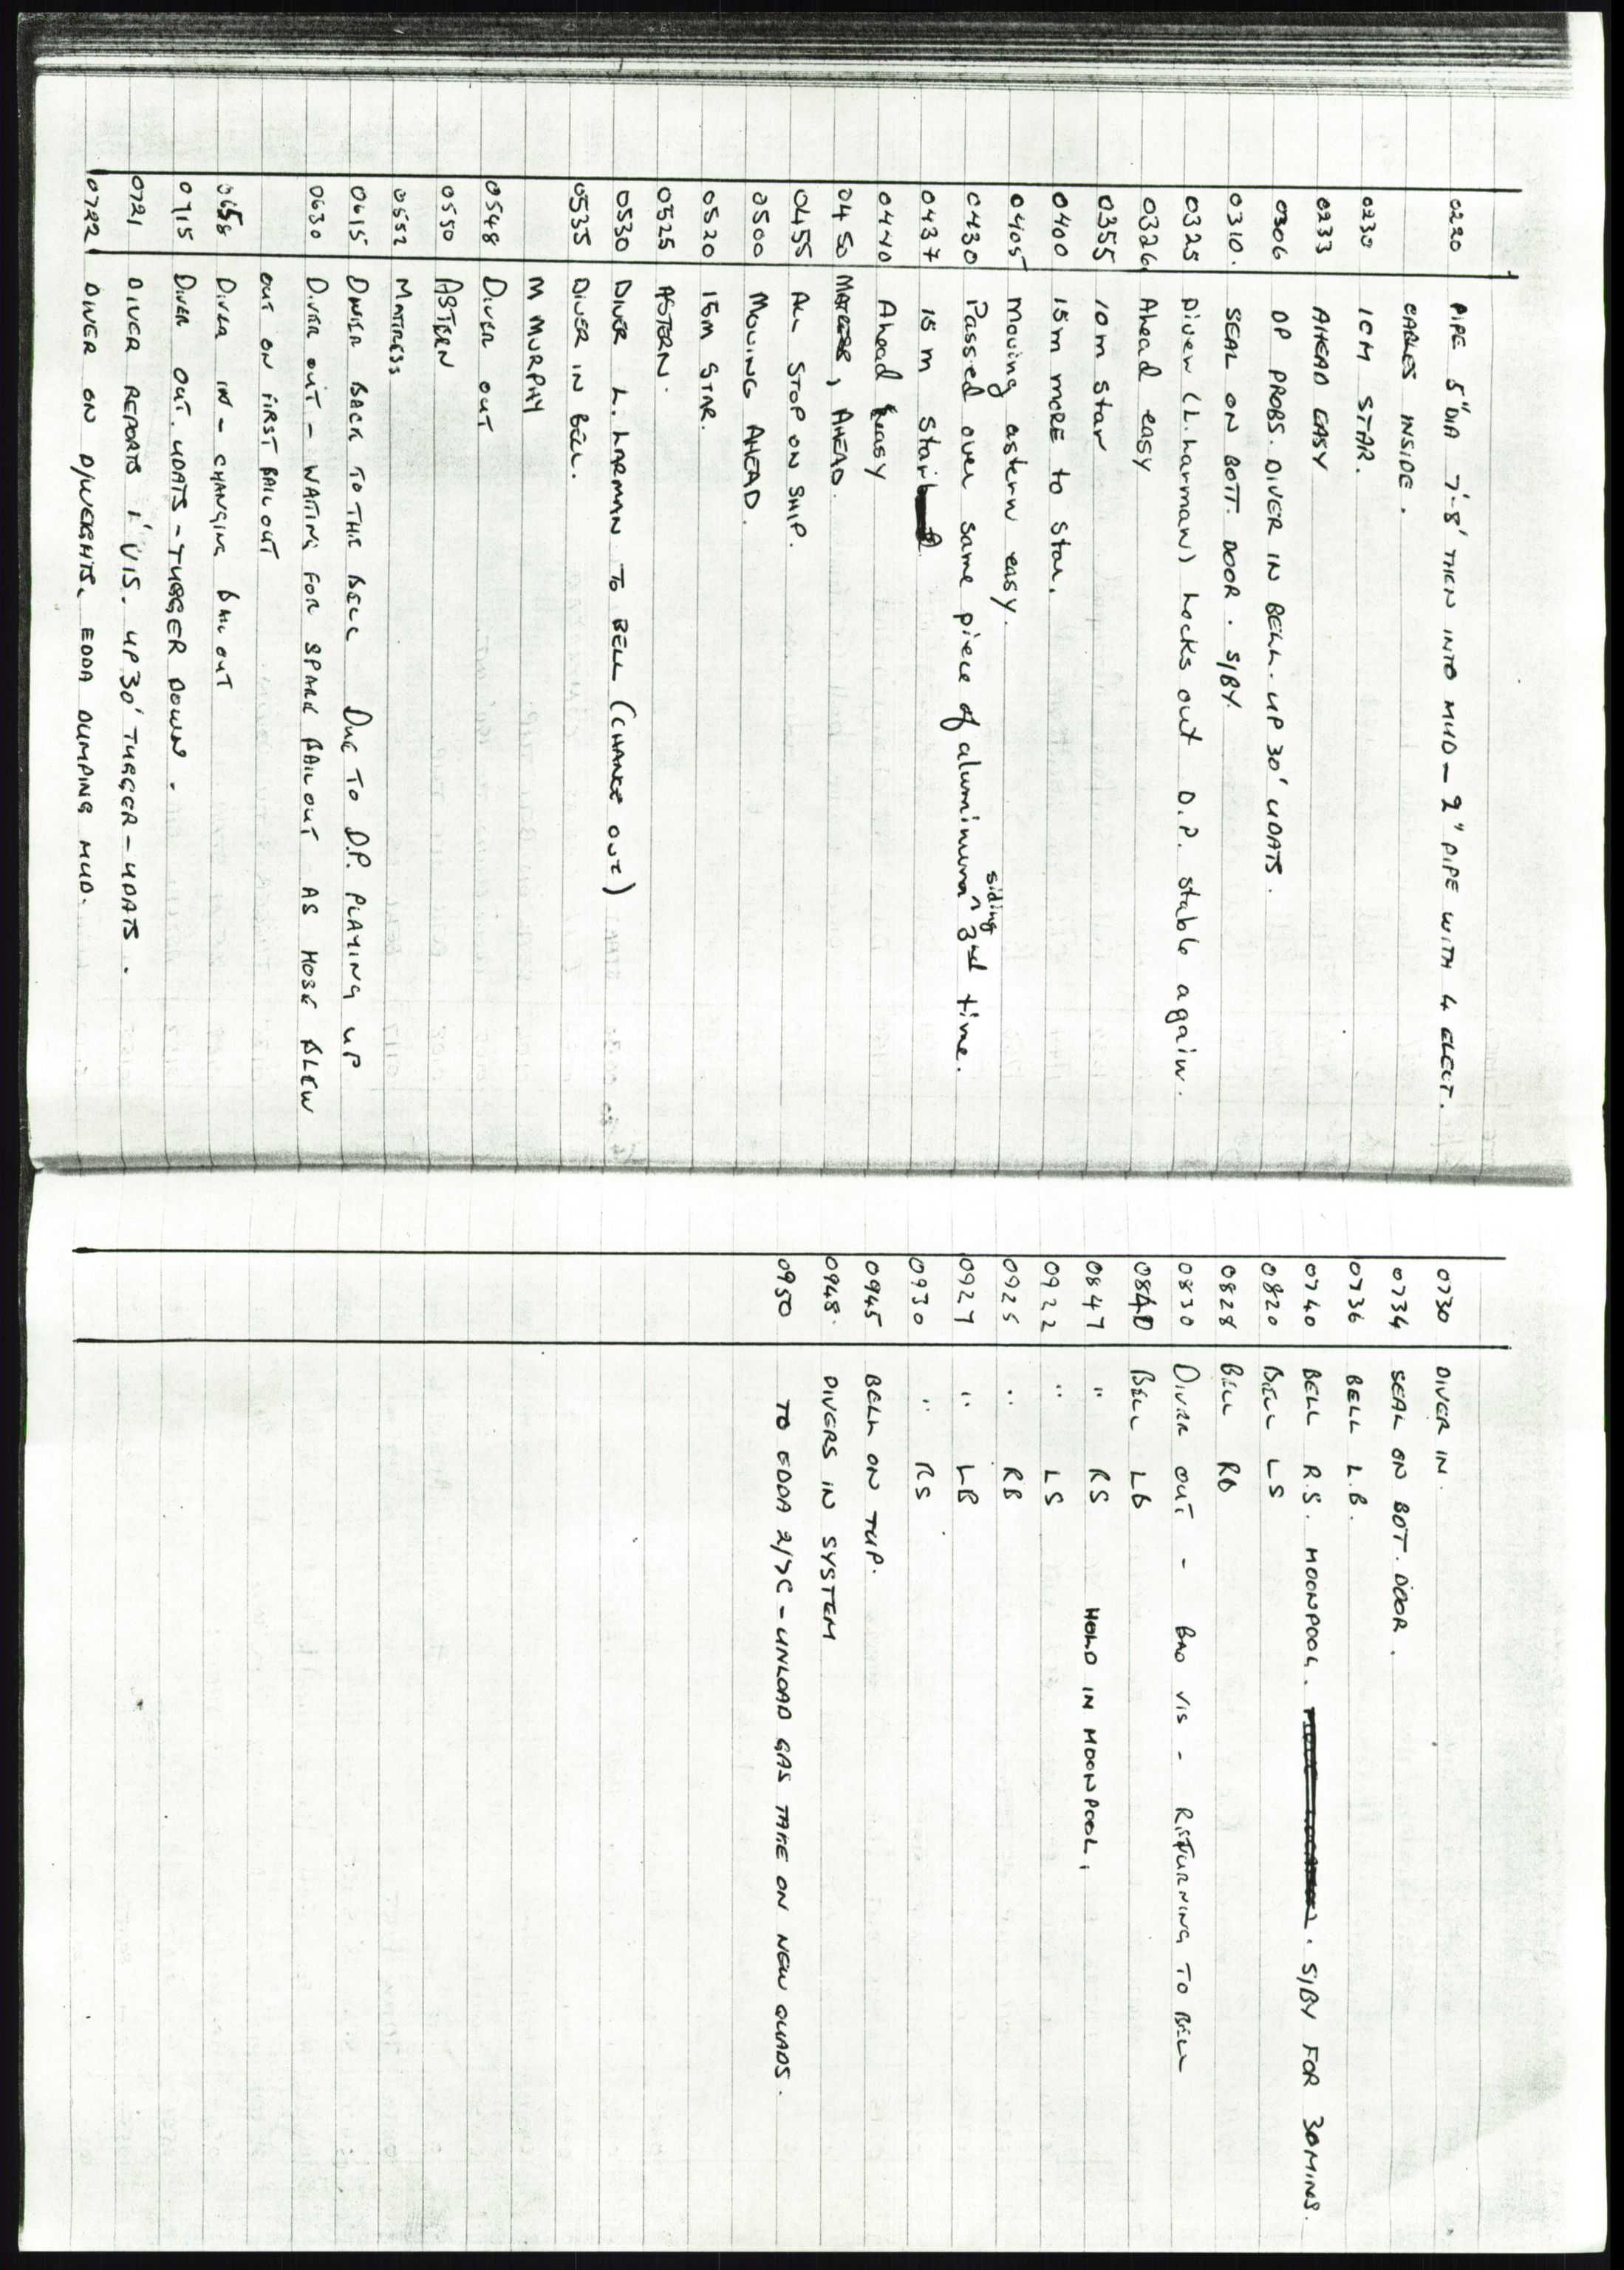 0220 PIPE 5" DIA 7'-8' THEN INTO MUD - 2" PIPE WITH 4 ELECT.
CABLES INSIDE.
0230 10M STAR.
0233 AHEAD EASY
0306 DP PROBS. DIVER IN BELL. UP 30' UDATS.
0310. SEAL ON BOTT. DOOR. S/BY.
0325 Diver (L. harman) locks out D.P. stable again.
0326 Ahead easy
0355 10 m star
0400 15 m MORE to star.
0405 Moving astern easy.
0430 Passed over same piece of aluminium siding 3rd time.
0437 15 m star
0440 Ahead easy
0450 , AHEAD.
0455 ALL STOP ON SHIP.
0500 MOVING AHEAD.
0520 15M STAR.
0525 ASTERN.
0530 DIVER L. LARMAN TO BELL (CHANGE OUT)
0535 DIVER IN BELL.
M MURPHY
0548 DIVER OUT
0550 ASTERN
0552 MATTRESS
0615 DIVER BACK TO THE BELL DUE TO D.P. PLAYING UP
0630 DIVER OUT - WAITING FOR SPARE BAIL OUT AS HOSE BLEW
OUT ON FIRST BAIL OUT
0658 DIVER IN - CHANGING BAIL OUT
0715 DIVER OUT. UDATS - TUGGER DOWN.
0721 DIVER REPORTS 1' VIS. UP 30' TUGGER - UDATS.
0722 DIVER ON D/WEIGHTS. EDDA DUMPING MUD.
0730 DIVER IN.
0734 SEAL ON BOT. DOOR.
0736 BELL L.B.
0740 BELL R.S. MOONPOOL. S/BY FOR 30 MINS.
0820 BELL LS
0828 BELL RB
0830 DIVER OUT - BAD VIS - RETURNING TO BELL
0840 BELL LB
0847 " RS HOLD IN MOONPOOL.
0922 " LS
0925 " RB
0927 " LB
0930 " RS
0945 BELL ON TUP.
0948. DIVERS IN SYSTEM
0950 TO EDDA 2/7C - UNLOAD GAS TAKE ON NEW QUADS.